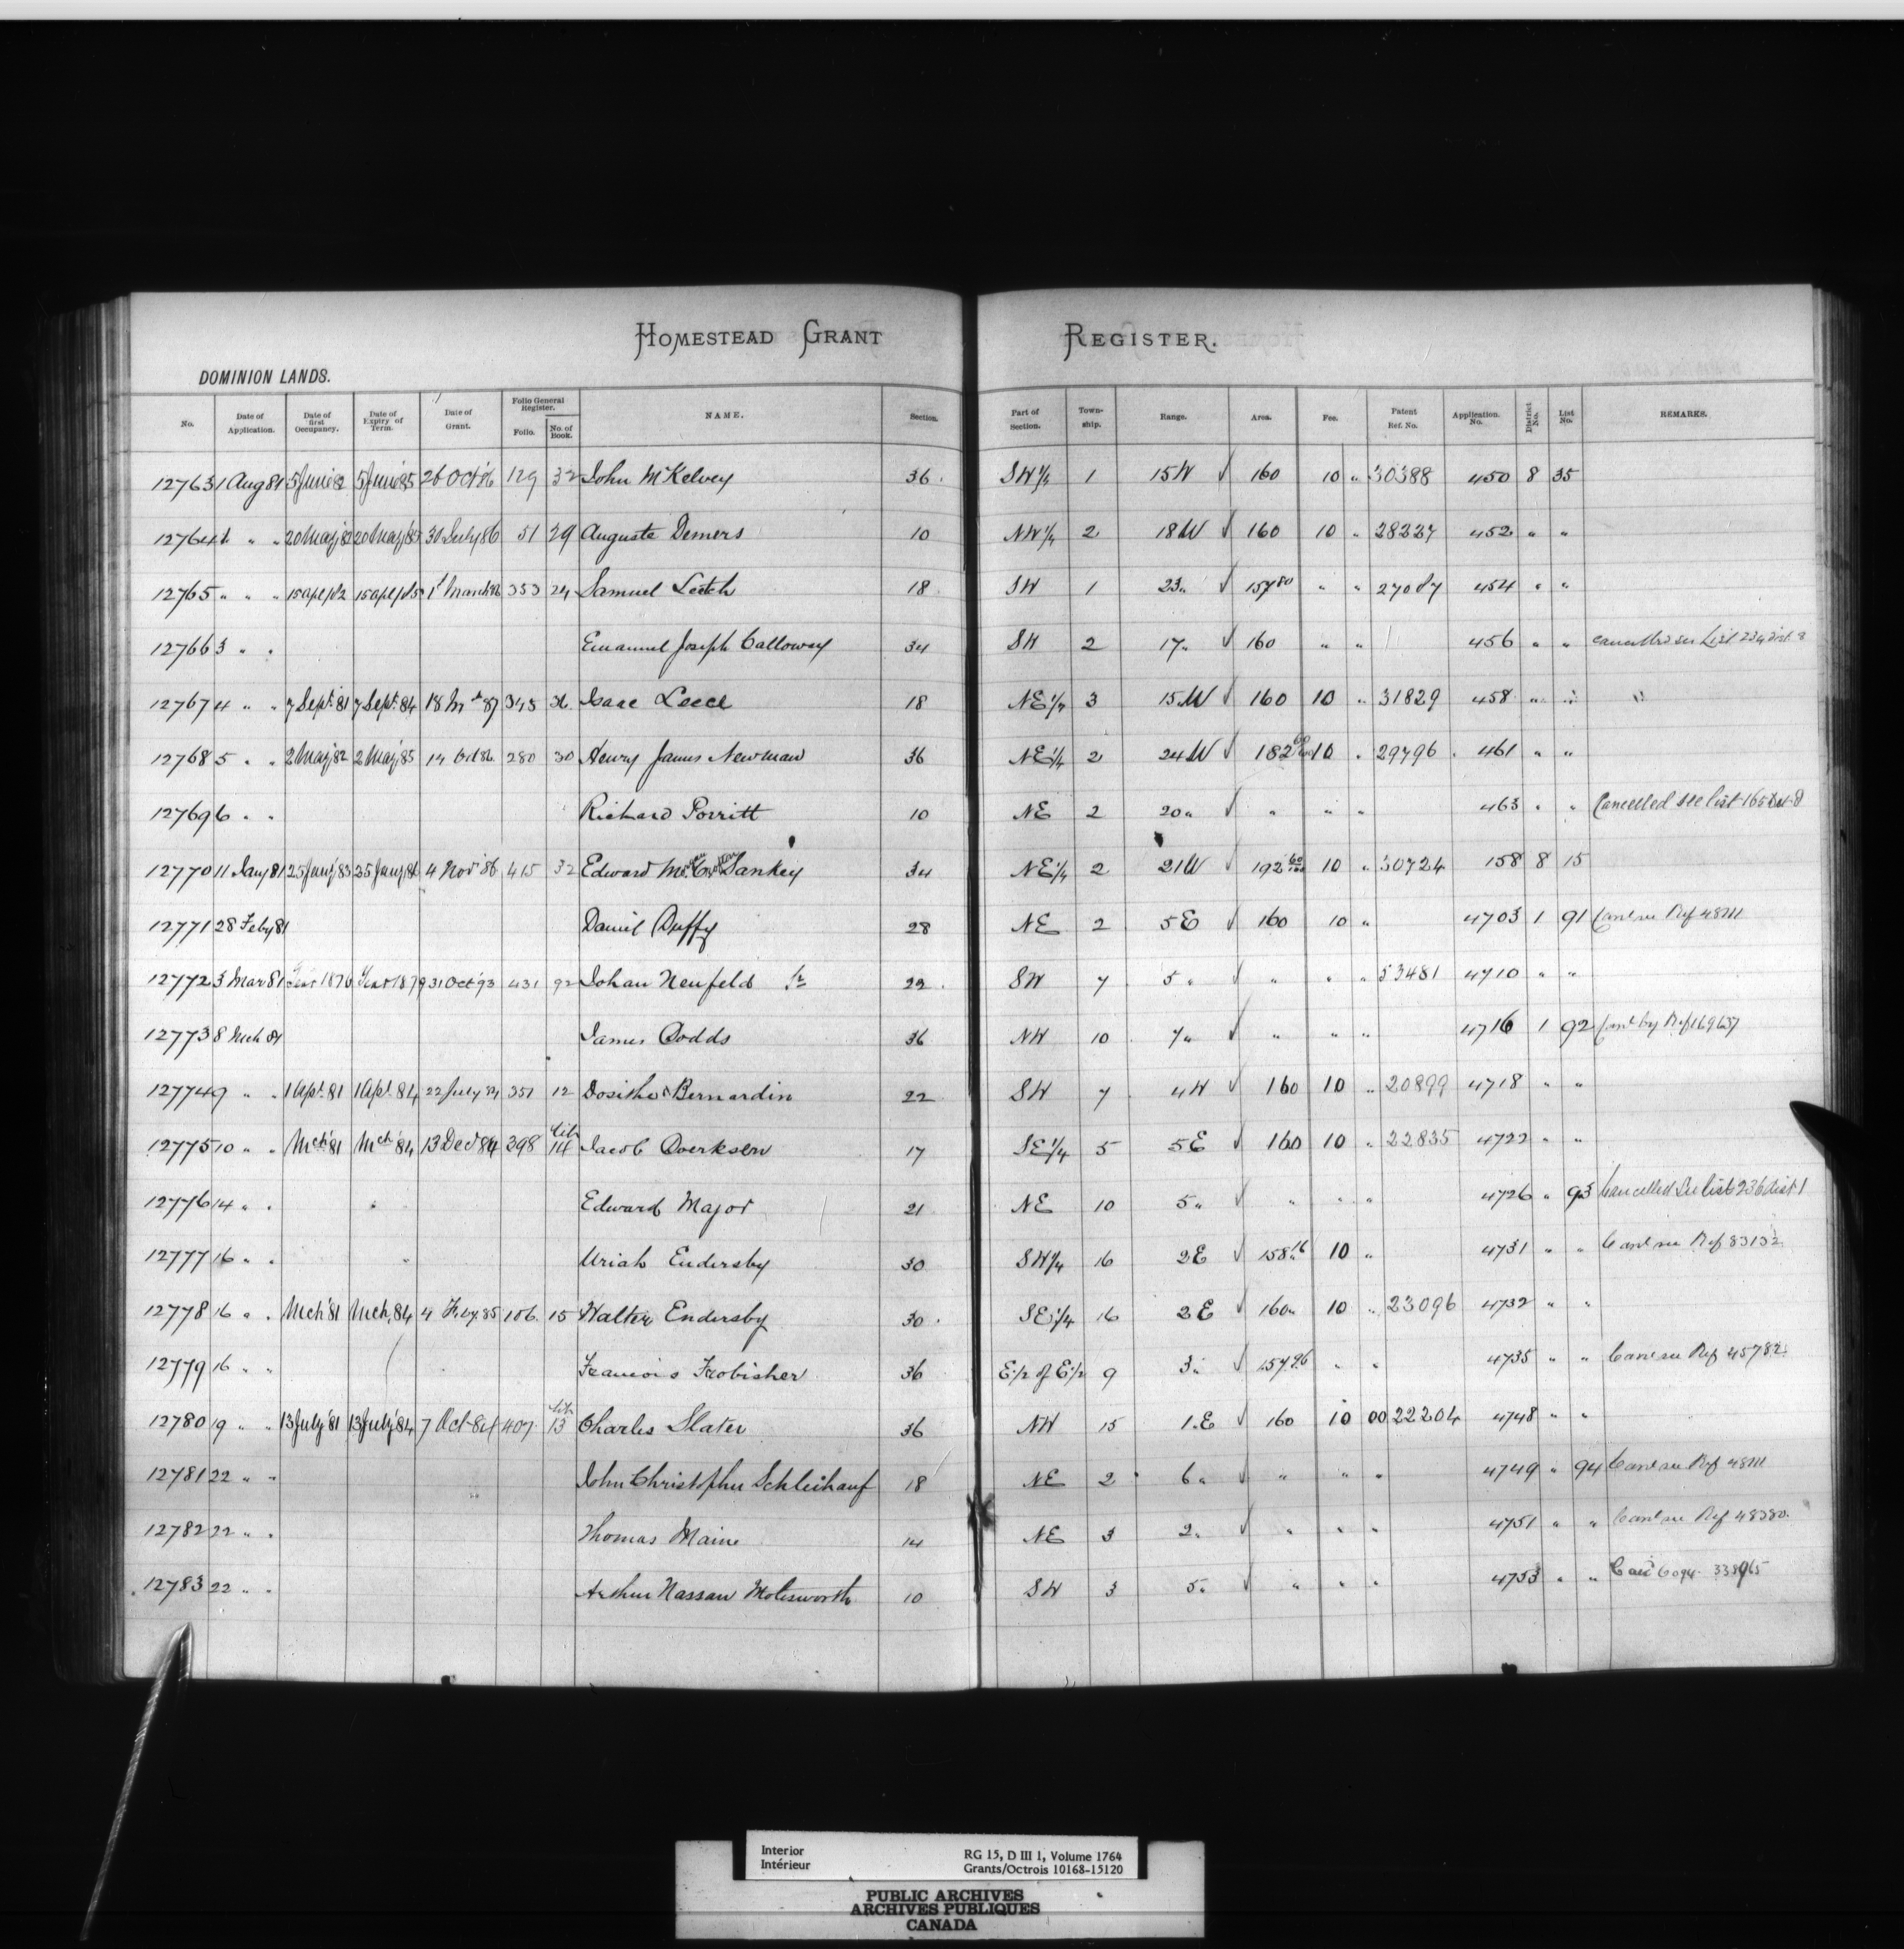 HOMESTEAD GRANT REGISTER.
DOMINION LANDS.
No. Date of Application. Date of first Occupancy. Date of Expiry of Term. Date of Grant. Folio General Register. Folio. No. of Book. NAME. Section. Part of Section. Township. Range. Area. Fee. Patent Ref. No. Application No. District No. List No. REMARKS.
12763 1 Aug 81 5 June 82 5 June 85 26 Oct 86 129 32 John McKelvey 36 SW 1/4 1 15 W √ 160 10 " 30388 450 8 35
12764 1 " " 20 May 82 20 May 85 30 July 86 51 29 Auguste Demers 10 NW 1/4 2 18 W √ 160 10 " 28227 452 " "
12765 " " " 15 Apl 82 15 Apl 85 1st March 86 353 24 Samuel Leitch 18 SW 1 23 " √ 157 80 " " 27087 454 " "
12766 3 " " Emanuel Joseph Calloway 34 SW 2 17 " √ 160 " " 456 " " Cancelled see List 234 Dist 8
12767 4 " " 7 Sept. 81 7 Sept. 84 18 Mar 87 345 36 Isaac Leece 18 NE 1/4 3 15 W √ 160 10 " 31829 458 " " "
12768 5 " " 2 May 82 2 May 85 14 Oct 86 280 30 Henry James Newman 36 NE 1/4 2 24 W √ 182 10 " 29796 461 " "
12769 6 " " Richard Porritt 10 NE 2 20 " √ " " " 463 " " Cancelled see list 165 Dist 8
12770 11 Jany 81 25 Jany 83 25 Jany 86 4 Nov 86 415 32 Edward Sankey 34 NE 1/4 2 21 W √ 192 60/100 10 " 30724 158 8 15
12771 28 Feby 81 Daniel Duffy 28 NE 2 5 E √ 160 10 " 4703 1 91 Canl see Ref 48111
12772 3 Mar 81 Year 1876 Year 1879 31 Oct 93 431 92 Johan Neufeld Sr 22 SW 7 5 " √ " " " 53481 4710 " "
12773 8 Mch 81 James Dodds 36 NW 10 7 " √ " " " 4716 1 92 Canl by Ref 169637
12774 9 " " 1 Apl. 81 1 Apl. 84 22 July 84 351 12 Dosithe Bernardin 22 SW 7 4 W √ 160 10 " 20899 4718 " "
12775 10 " " Mch 81 Mch 84 13 Dec 84 398 Lib 14 Jacob Doerksen 17 SE 1/4 5 5 E √ 160 10 " 22835 4722 " "
12776 14 " " Edward Major 21 NE 10 5 " √ " " " 4726 " 93 Cancelled See list 236 dist 1
12777 16 " " Uriah Endersby 30 SW 1/4 16 2 E √ 158 16 10 " 4731 " " Canl see Ref 83132
12778 16 " " Mch 81 Mch 84 4 Feby. 85 106 15 Walter Endersby 30 SE 1/4 16 2 E √ 160 " 10 " 23096 4732 " "
12779 16 " " Francois Frobisher 36 E 1/2 of E 1/2 9 3 " √ 157.96 " " 4735 " " Canl see Ref 45782
12780 19 " " 13 July 81 13 July 84 7 Oct 84 407 Lib 13 Charles Slater 36 NW 15 1 E √ 160 10 00 22204 4748 " "
12781 22 " " John Christopher Schleihauf 18 NE 2 6 " √ " " " 4749 " 94 Canl see Ref 48111
12782 22 " " Thomas Maine 14 NE 3 2 " √ " " " 4751 " " Canl see Ref 48380
12783 22 " " Arthur Nassau Molesworth 10 SW 3 5 " √ " " " 4753 " " 338965
Interior
Intérieur
RG 15, D III 1, Volume 1764
Grants/Octrois 10168-15120
PUBLIC ARCHIVES
ARCHIVES PUBLIQUES
CANADA